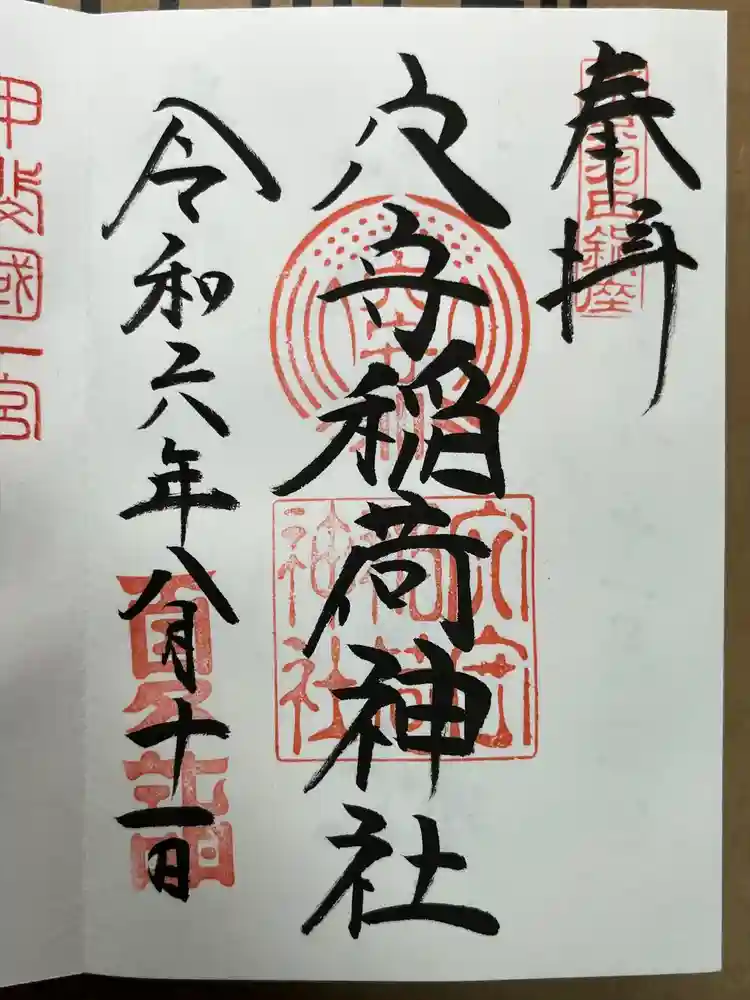 奉拝
羽田鎮座
穴守稲荷神社
穴守
稲荷
神社
令和六年八月十一日
夏詣
甲斐國一宮